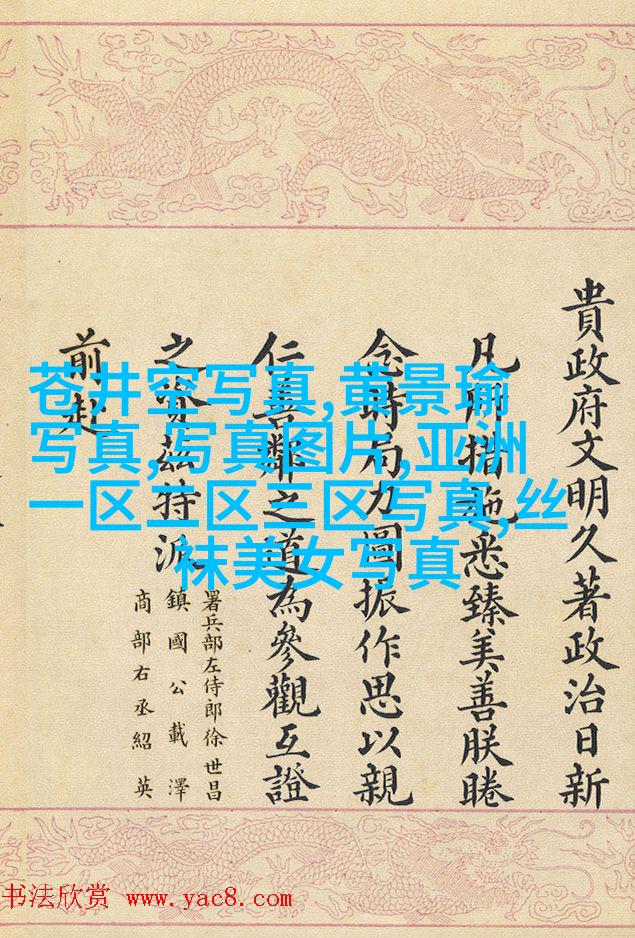 貴政府文明久著政治日新
凡所措施悉臻美善朕睠
念時局力圖振作思以親
仁善鄰之道為參觀互證
之資茲特派
署兵部左侍郎徐世昌
鎮國公載澤
商部右丞紹英
前赴
苍井空写真,黄景瑜
写真,写真图片,亚洲
一区二区三区写真,丝
袜美女写真
书法欣赏 www.yac8.com